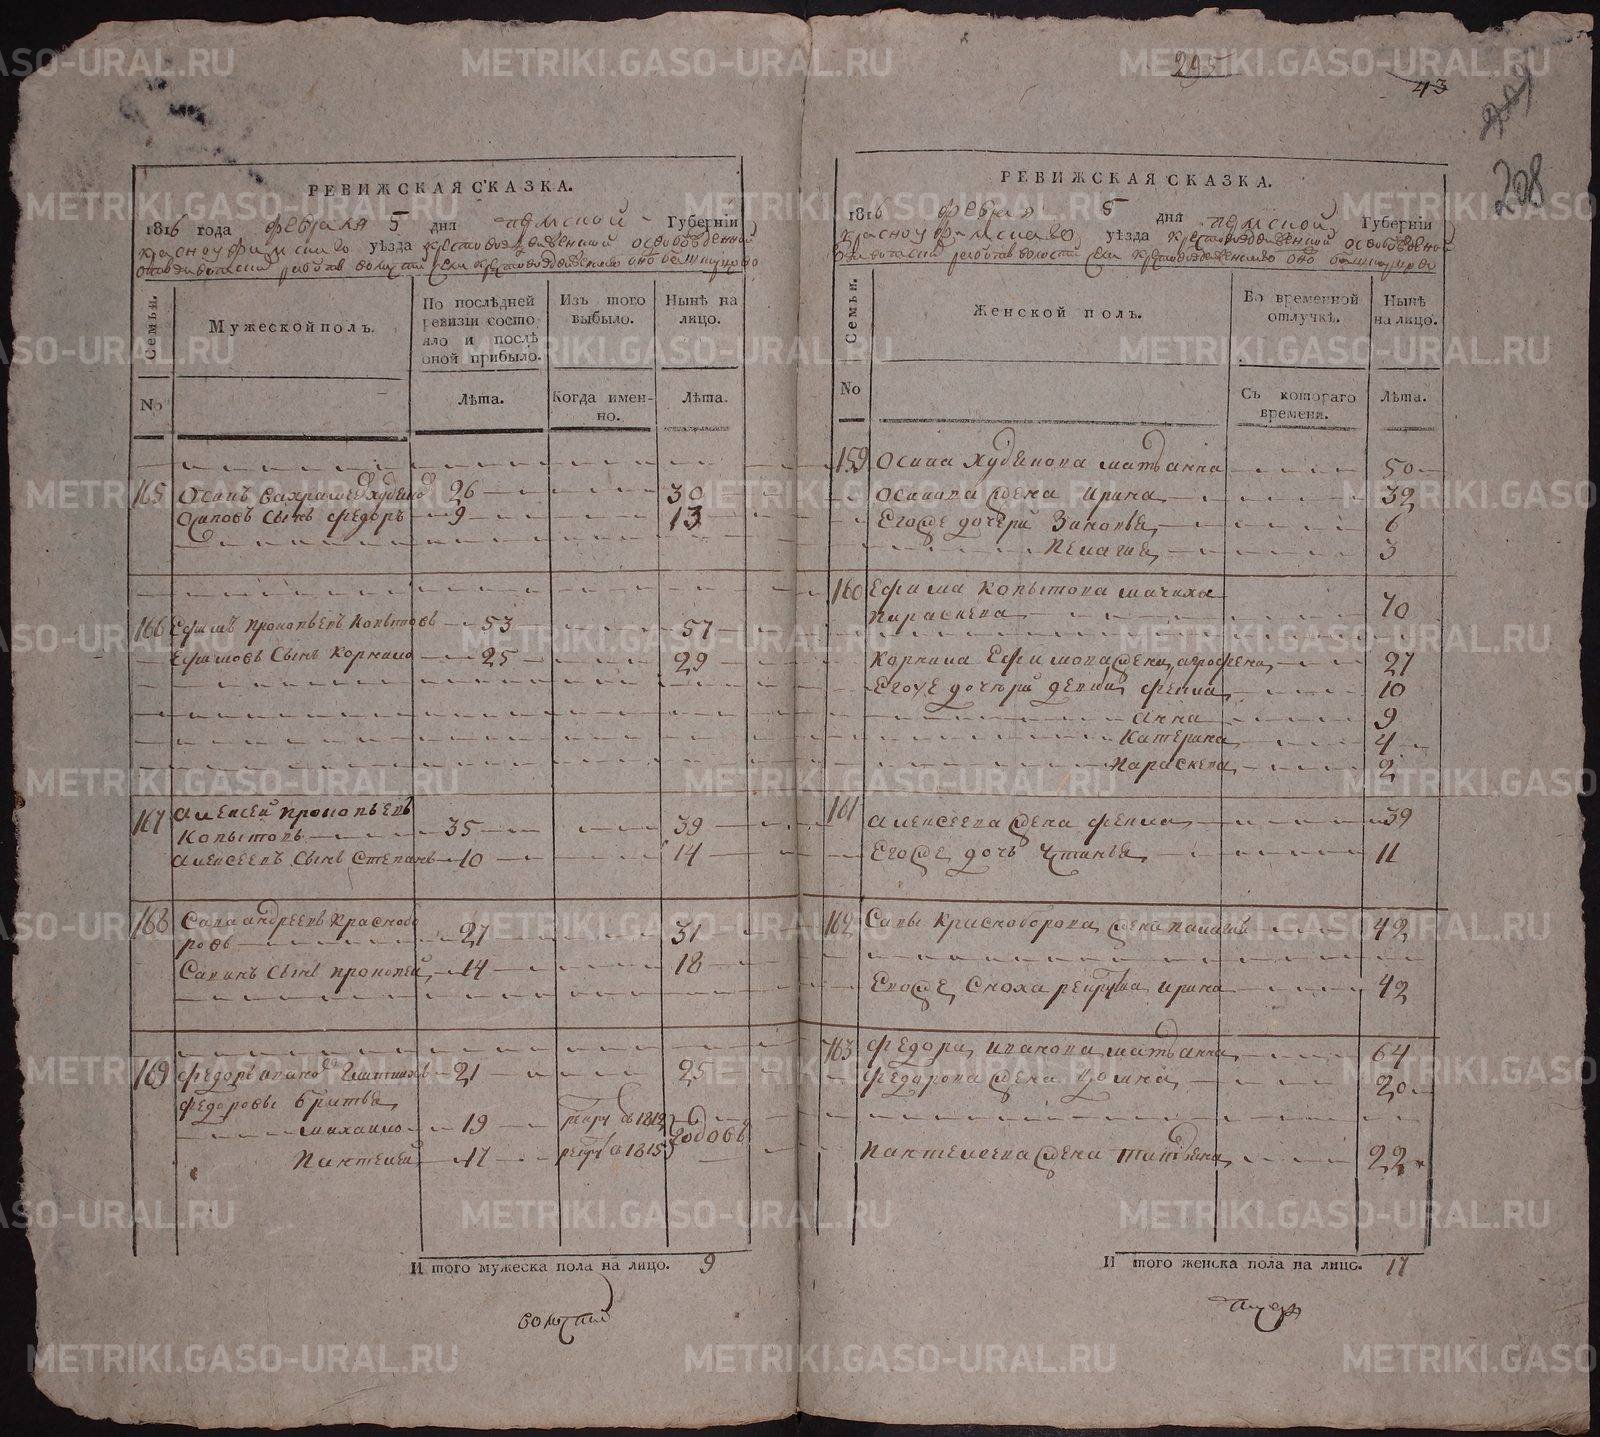 295
43
208
РЕВИЖСКАЯ СКАЗКА.
1816 года февраля 5 дня пермской Губерніи
красноуфимскаго уѣзда крестовоздвиженской
волости села крестовоздвиженского оно
Семьи.
Мужеской полъ.
По послѣдней ревизіи состояло и послѣ оной прибыло.
Изъ того выбыло.
Нынѣ на лицо.
No
Лѣта.
Когда именно.
Лѣта.
165 Осипъ Худяков 26 30
Осиповъ Сынъ федоръ 9 13
166 Ефимъ прокопьевъ Копытовъ 53 57
Ефимовъ Сынъ Корнило 25 29
167 Алексей прокопьевъ
Копытовъ 35 39
Алексеевъ Сынъ Степанъ 10 14
168 Сава андреевъ Красноборовъ 27 31
Савинъ Сынъ прокопей 14 18
169 федоръ иванов 21 25
федоровы братья
михаило 19 рекру в 1812 годовъ
пантелей 17 рекру в 1815
И того мужеска пола на лицо. 9
РЕВИЖСКАЯ СКАЗКА.
1816 феврал 5 дня пермской Губерніи
красноуфимскаго уѣзда крестовоздвиженской
волости села крестовоздвиженского оно
Семьи.
Женской полъ.
Во временной отлучкѣ.
Нынѣ на лицо.
No
Съ котораго времени.
Лѣта.
159 Осипа Худякова мать анна 50
Осипова жена Ирина 32
Его же дочери Зиновья 6
Пелагия 3
160 Ефима Копытова мачиха
параскева 70
Корнила Ефимова жена агрофена 27
Его же дочери девки фекла 10
анна 9
Катерина 4
параскева 2
161 Алексеева жена фекла 39
Его же дочь Устинья 11
162 Савы Красноборова жена палагея 42
Его же Сноха рекрутка ирина 42
163 федора иванова мать анна 64
федорова жена 20
пантелеева жена татьяна 22
И того женска пола на лицо. 17